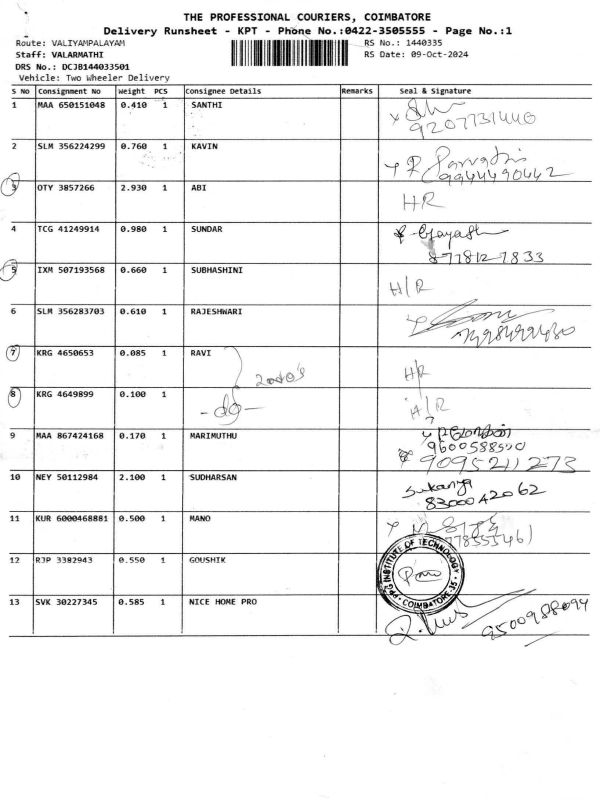 THE PROFESSIONAL COURIERS, COIMBATORE
Delivery Runsheet - KPT - Phone No.:0422-3505555 - Page No.:1
Route: VALIYAMPALAYAM RS No.: 1440335
Staff: VALARMATHI RS Date: 09-Oct-2024
DRS No.: DCJB144033501
Vehicle: Two Wheeler Delivery
S No Consignment No Weight PCS Consignee Details Remarks Seal & Signature
1 MAA 650151048 0.410 1 SANTHI
9207731446
2 SLM 356224299 0.760 1 KAVIN
9944490442
3 OTY 3857266 2.930 1 ABI HR
4 TCG 41249914 0.980 1 SUNDAR
8778127833
5 IXM 507193568 0.660 1 SUBHASHINI H/R
6 SLM 356283703 0.610 1 RAJESHWARI
7 KRG 4650653 0.085 1 RAVI H/R
8 KRG 4649899 0.100 1 -do- H/R
9 MAA 867424168 0.170 1 MARIMUTHU
9600588500
9095211273
10 NEY 50112984 2.100 1 SUDHARSAN Sukanya
8300042062
11 KUR 6000468881 0.500 1 MANO
12 RJP 3382943 0.550 1 GOUSHIK
PPG INSTITUTE OF TECHNOLOGY
COIMBATORE-35
13 SVK 30227345 0.585 1 NICE HOME PRO
9500988094